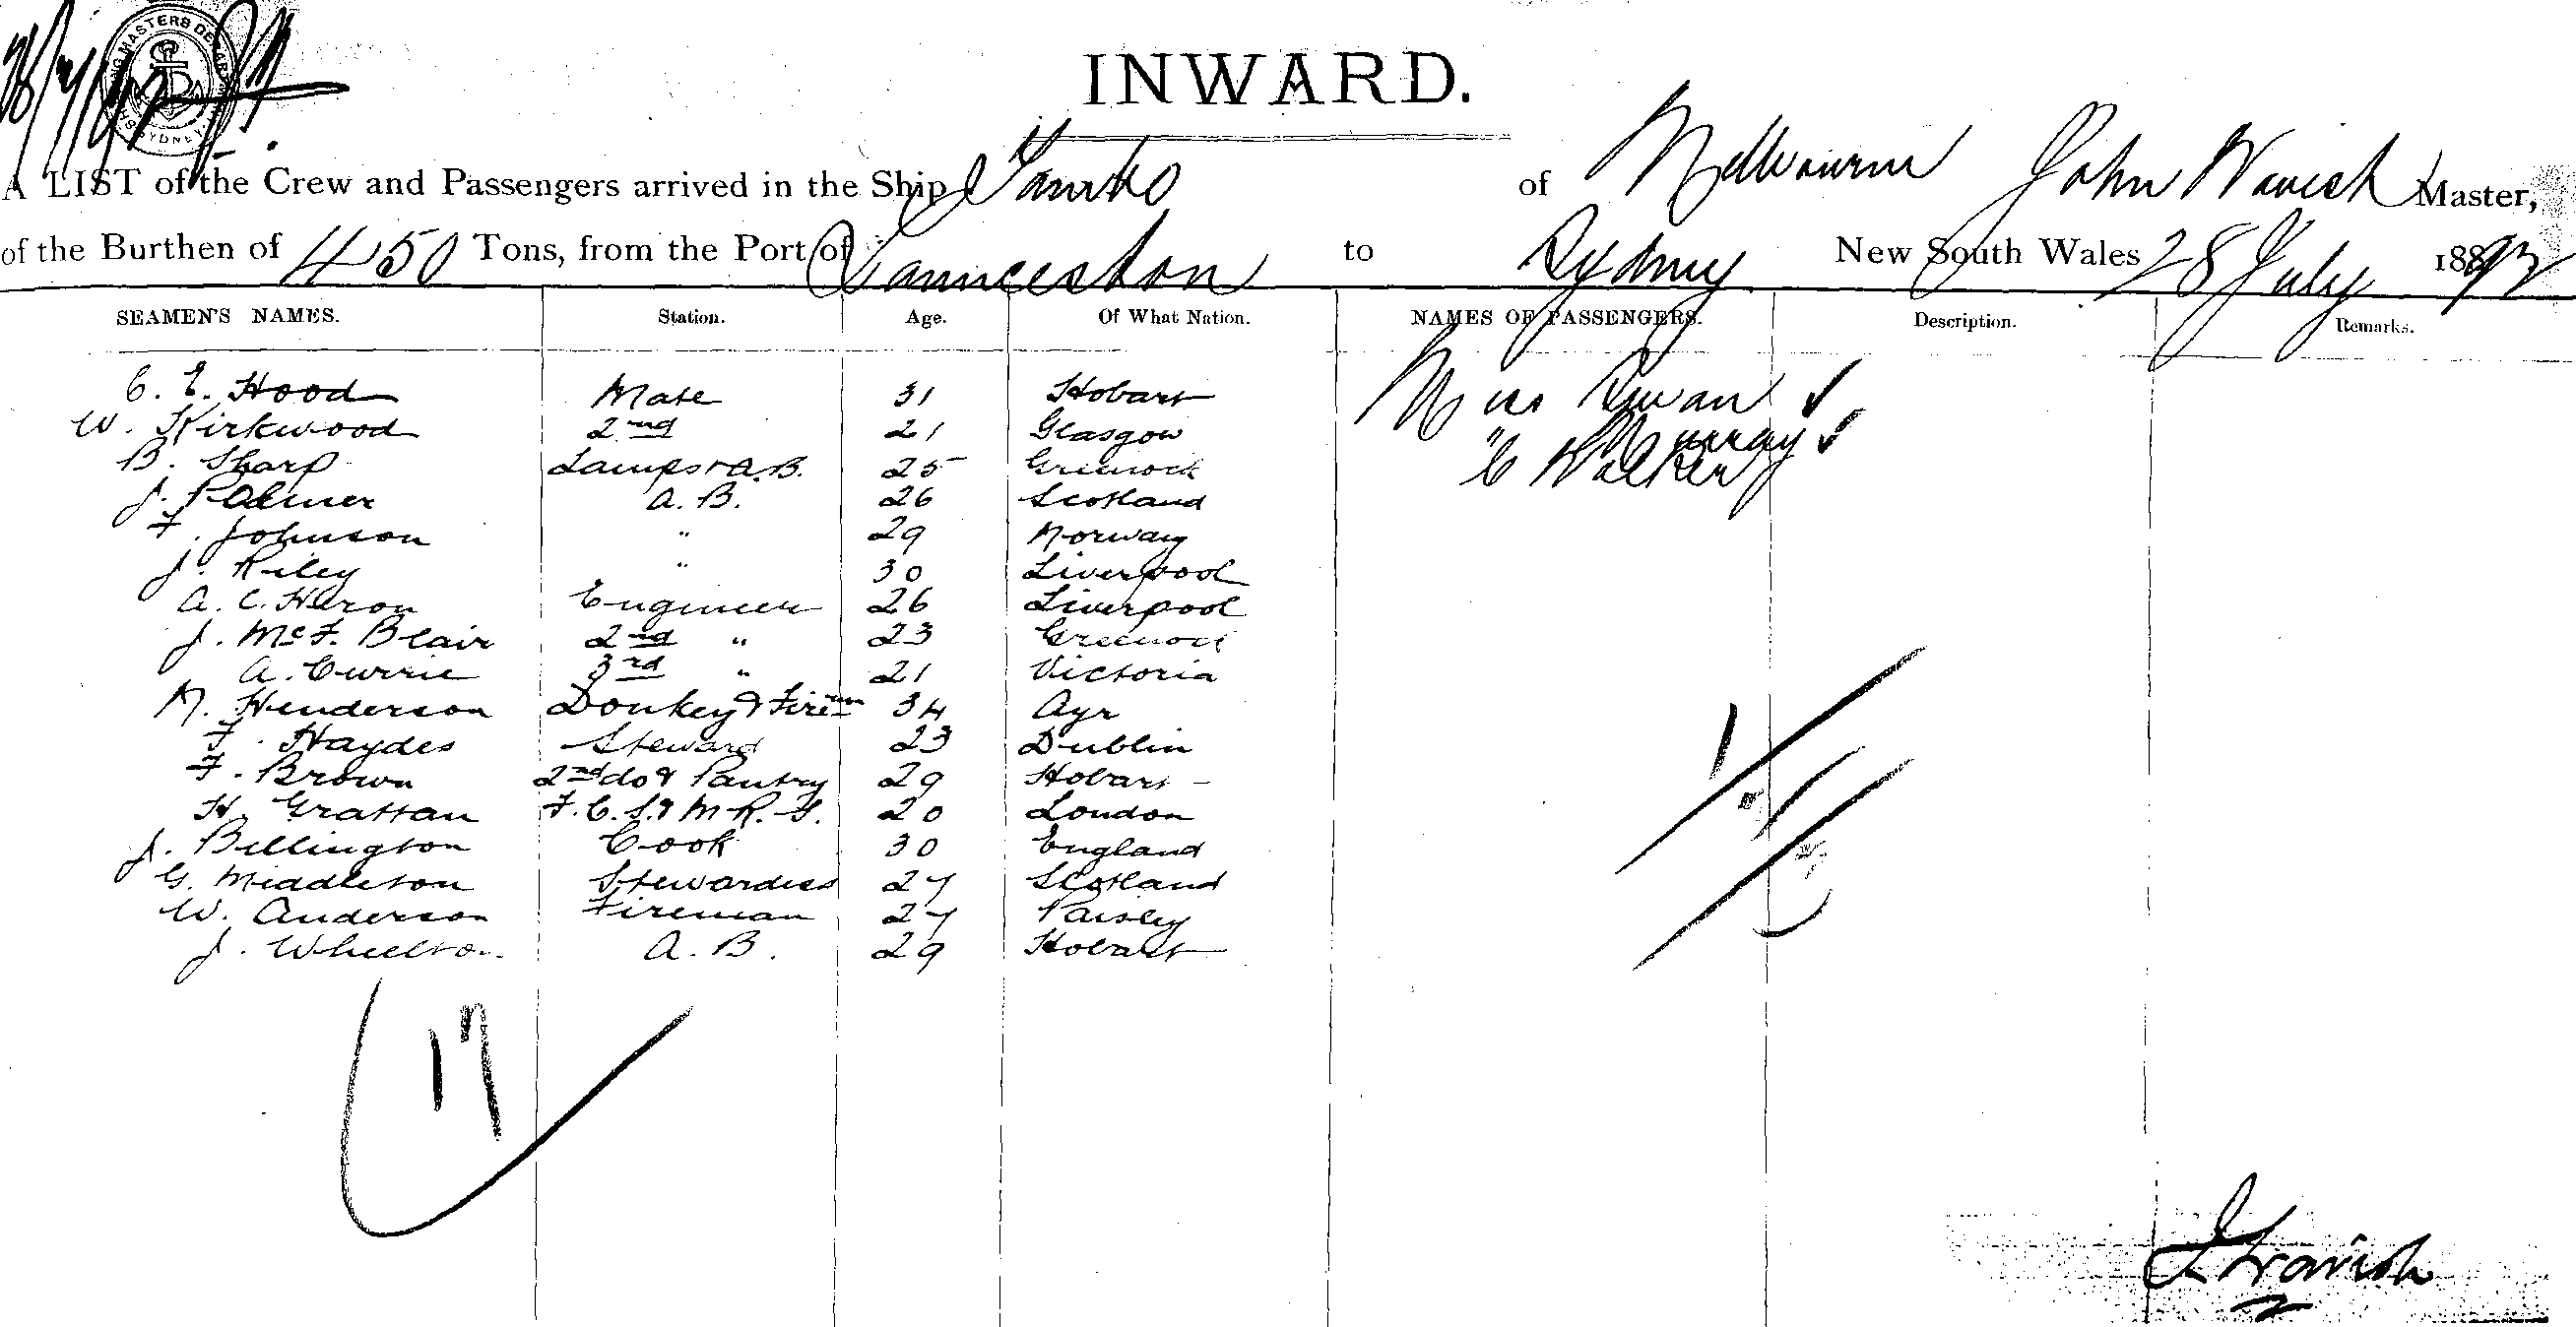 INWARD.
A LIST of the Crew and Passengers arrived in the Ship of Melbourne John Master,
of the Burthen of 450 Tons, from the Port of Launceston to Sydney New South Wales 28 July 1892
SEAMEN'S NAMES. Station. Age. Of What Nation. NAMES OF PASSENGERS. Description. Remarks.
C. E. Hood Mate 31 Hobart Miss
W. Kirkwood 2nd 21 Glasgow " Murray
B. Sharp Lamps & A.B. 25 Greenock " Walker
J. Palmer A. B. 26 Scotland
F. Johnson " 29 Norway
J. Riley " 30 Liverpool
A. C. Heron Engineer 26 Liverpool
J. McF. Blair 2nd " 23 Greenock
A. Currie 3rd " 21 Victoria
M. Henderson Donkey & Firemn 34 Ayr
F. Haydes Steward 23 Dublin
F. Brown 2nd do & Pantry 29 Hobart
H. Grattan F.C.S. & M.R.S. 20 London
J. Billington Cook 30 England
G. Middleton Stewardess 27 Scotland
W. Anderson Fireman 27 Paisley
J. Wheelton A. B. 29 Hobart
17